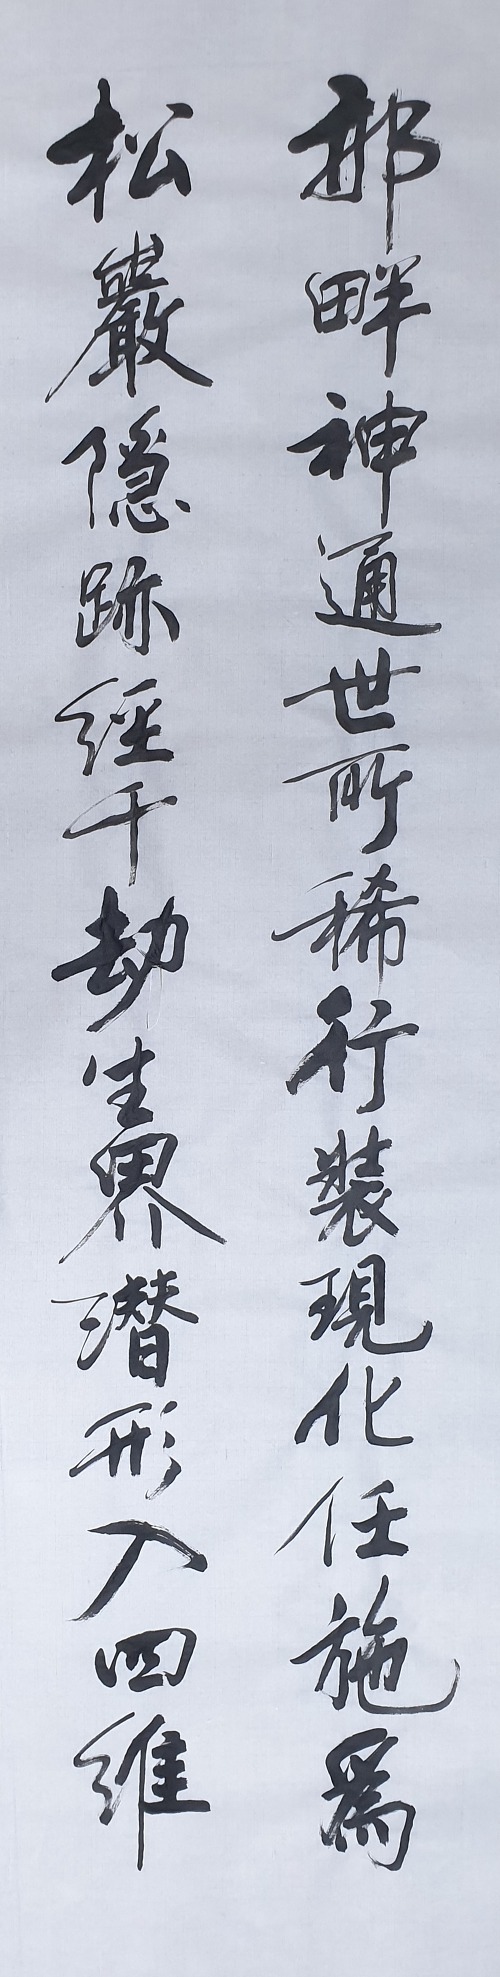 那畔神通世所稀行裝現化任施爲
松巖隠跡經千劫生界潜形入四維